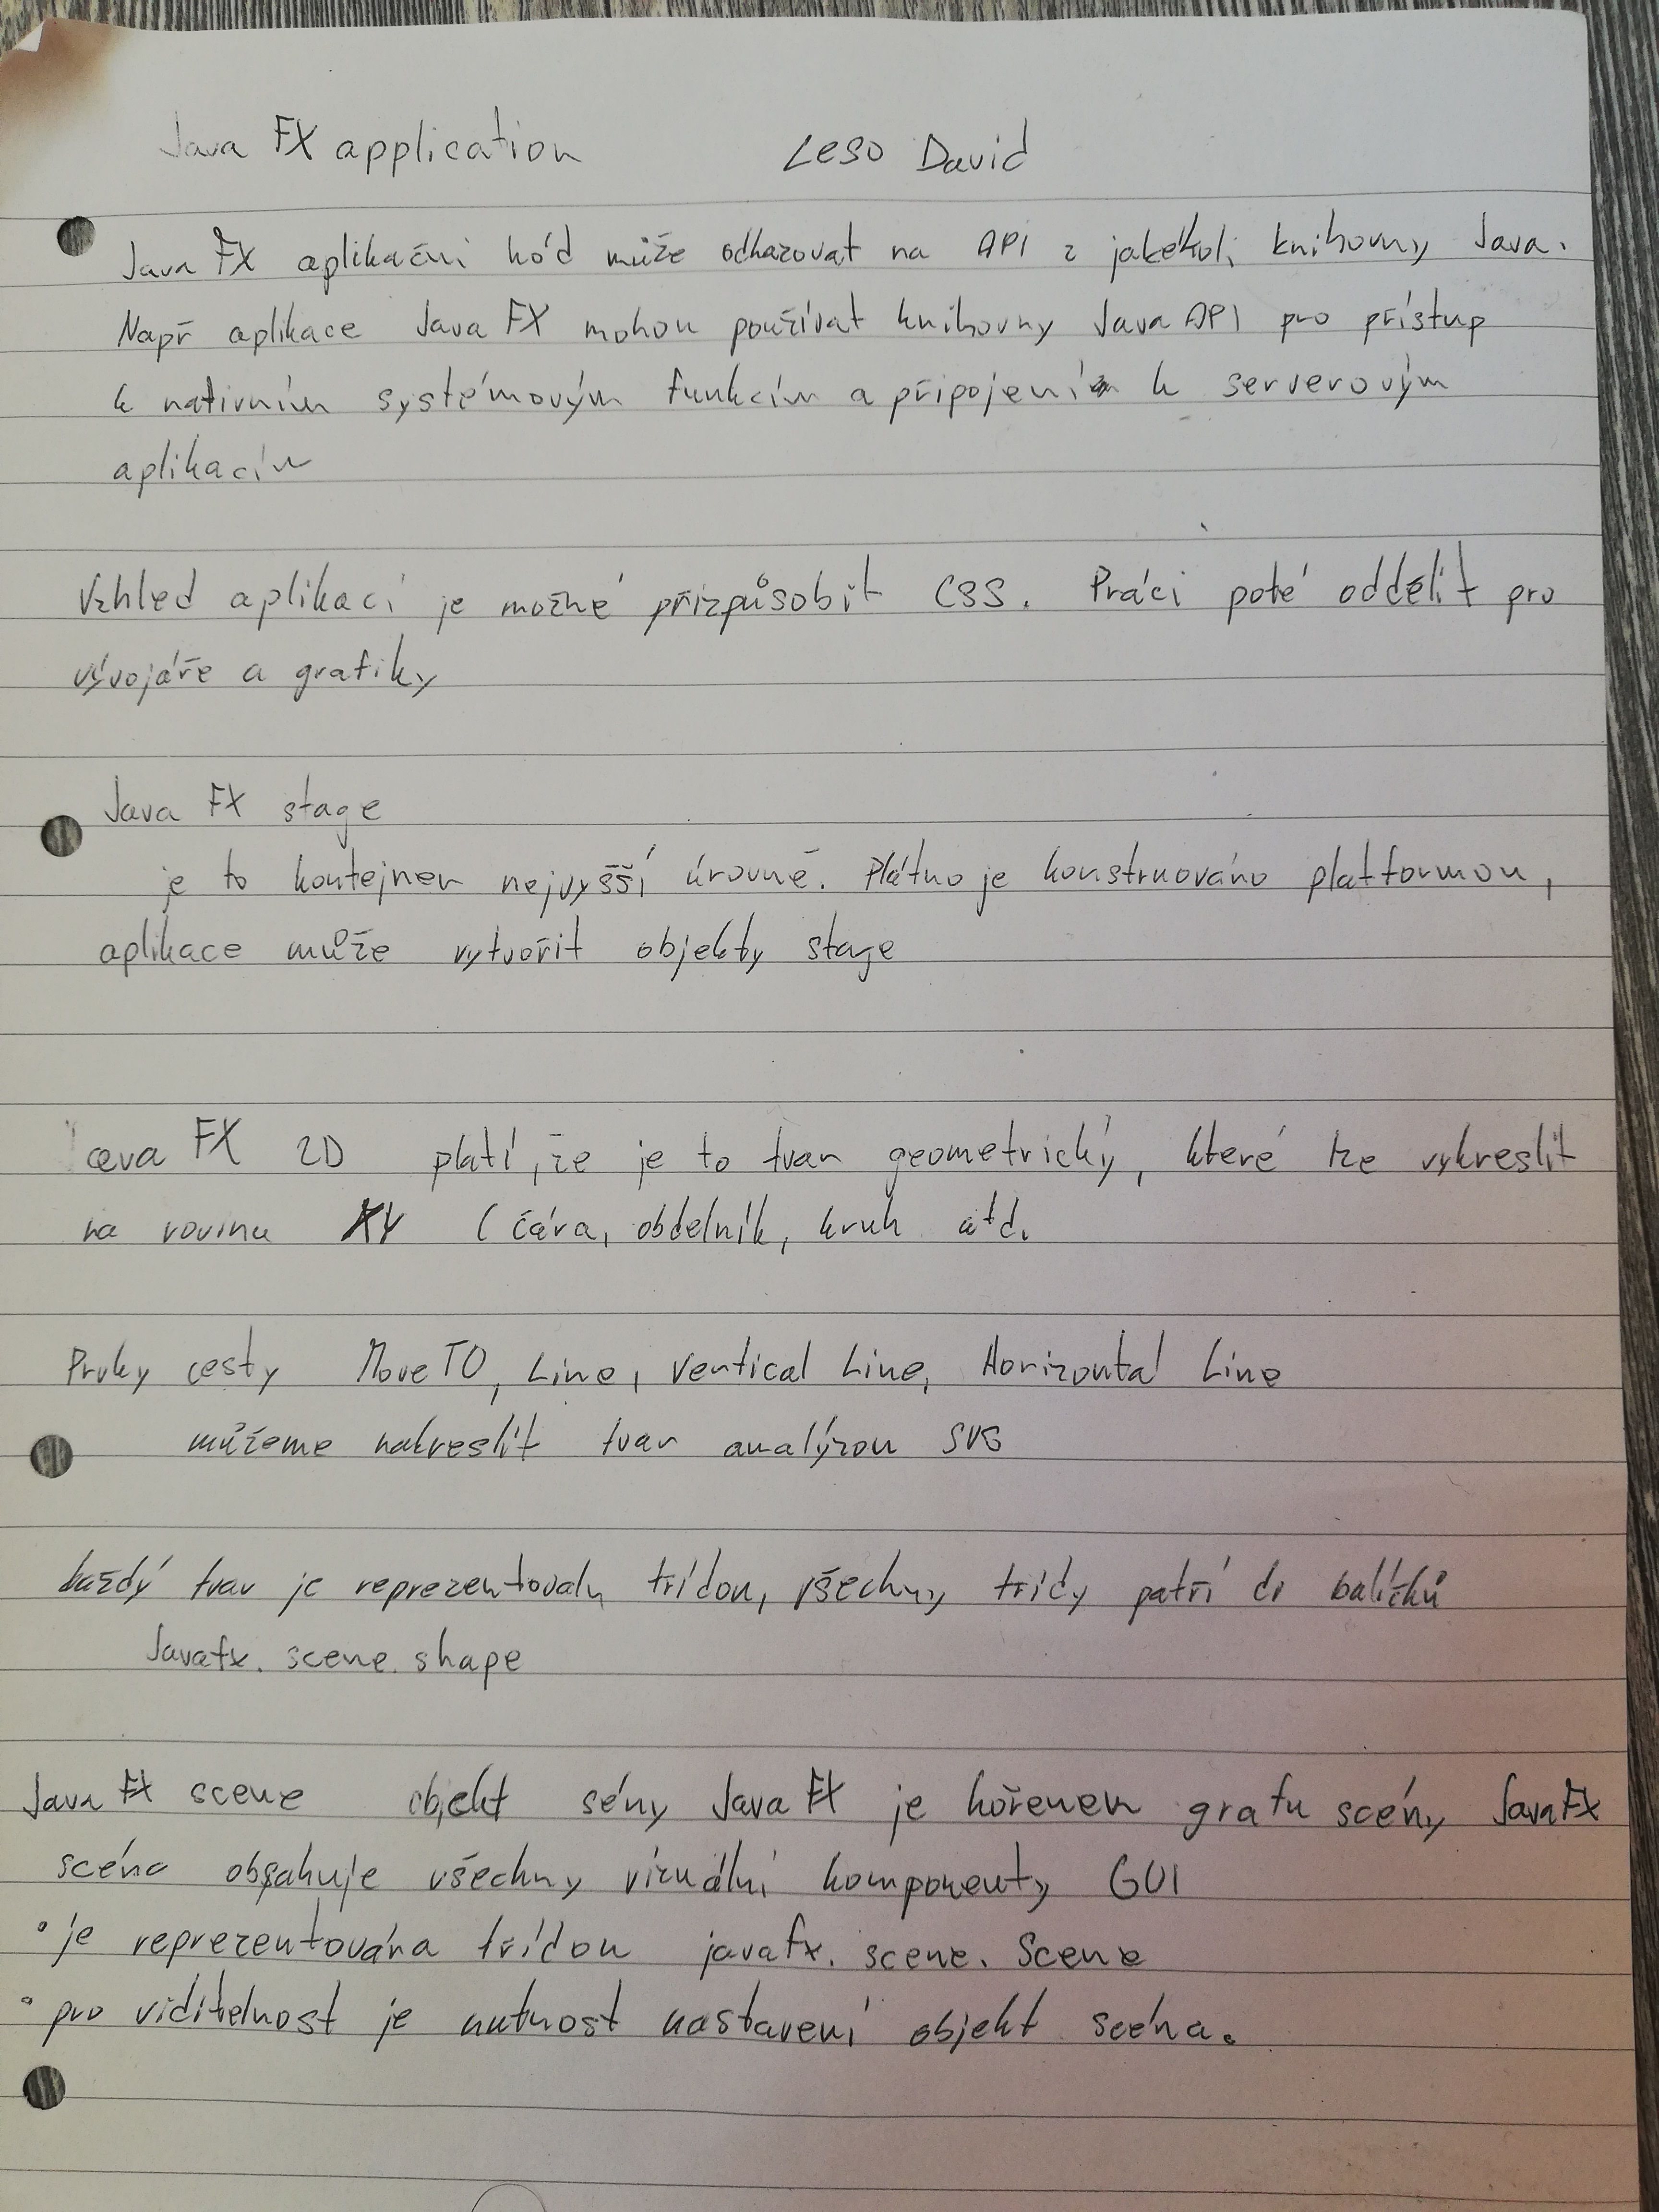 Java FX application Leso David
Java FX aplikační kód může odkazovat na API z jakékoli knihovny Java.
Např aplikace Java FX mohou používat knihovny Java API pro přístup
k nativním systémovým funkcím a připojení k serverovým
aplikacím
Vzhled aplikací je možné přizpůsobit CSS. Práci poté oddělit pro
vývojáře a grafiky
Java FX stage
je to kontejner nejvyšší úrovně. Plátno je konstruováno platformou,
aplikace může vytvořit objekty stage
Java FX 2D platí, že je to tvar geometrický, které lze vykreslit
na rovinu XY (čára, obdelník, kruh atd.
Prvky cesty MoveTO, Line, Vertical Line, Horizontal Line
můžeme nakreslit tvar analýzou SVG
každý tvar je reprezentovaln třídou, všechny třídy patří do balíčků
Javafx. scene. shape
Java FX scene objekt sény Java FX je kořenem grafu scény JavaFX
scéna obsahuje všechny vizuální komponenty GUI
• je reprezentována třídou javafx. scene. Scene
• pro viditelnost je nutnost nastavení objekt scéna.